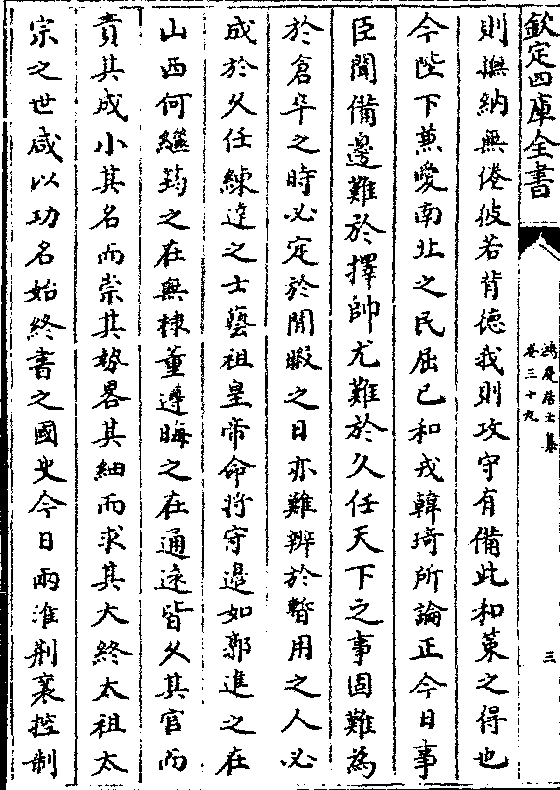 欽定四庫全書
鴻慶居士集
卷三十九
三
則撫納無倦彼若背德我則攻守有備此和策之得也
今陛下兼愛南北之民屈已和戎韓琦所論正今日事
臣聞備邊難於擇帥尤難於久任天下之事固難為
於倉卒之時必定於閒暇之日亦難辨於暫用之人必
成於久任練達之士藝祖皇帝命将守邉如郭進之在
山西何繼筠之在無棣董遵晦之在通逺皆久其官而
責其成小其名而崇其勢畧其細而求其大終太祖太
宗之世咸以功名始終書之國史今日兩淮荆襄控制